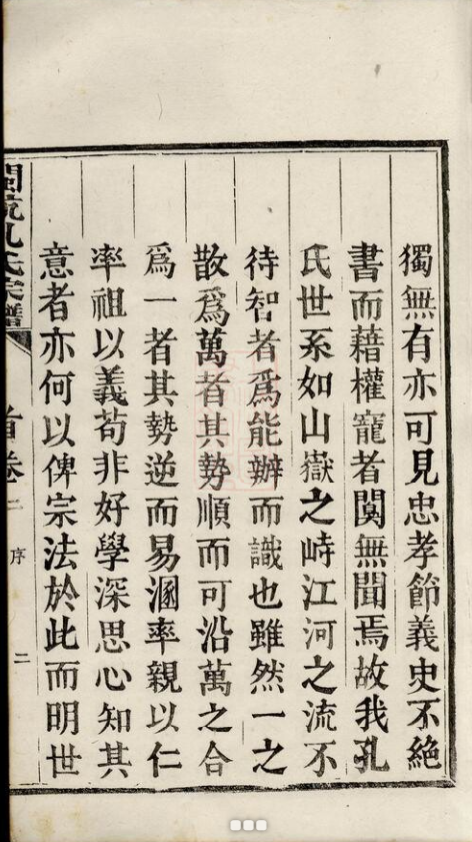 獨無有亦可見忠孝節義史不絶
書而藉權寵者闃無聞焉故我孔
氏世系如山嶽之峙江河之流不
待智者爲能辦而識也雖然一之
散爲萬者其勢順而可沿萬之合
爲一者其勢逆而易溷率親以仁
率祖以義苟非好學深思心知其
意者亦何以俾宗法於此而明世
孔氏宗譜
首卷二
序
二